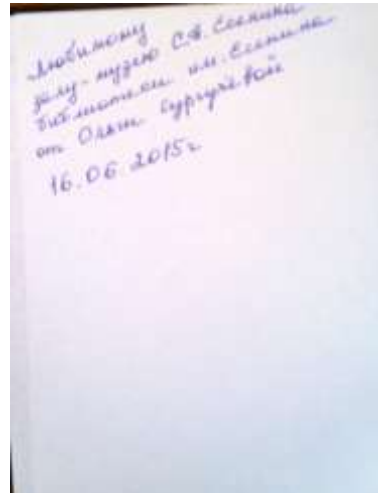 Любимому
залу-музею С.А. Есенина
библиотеки им. Есенина
от Ольги Сургучёвой
16.06.2015г